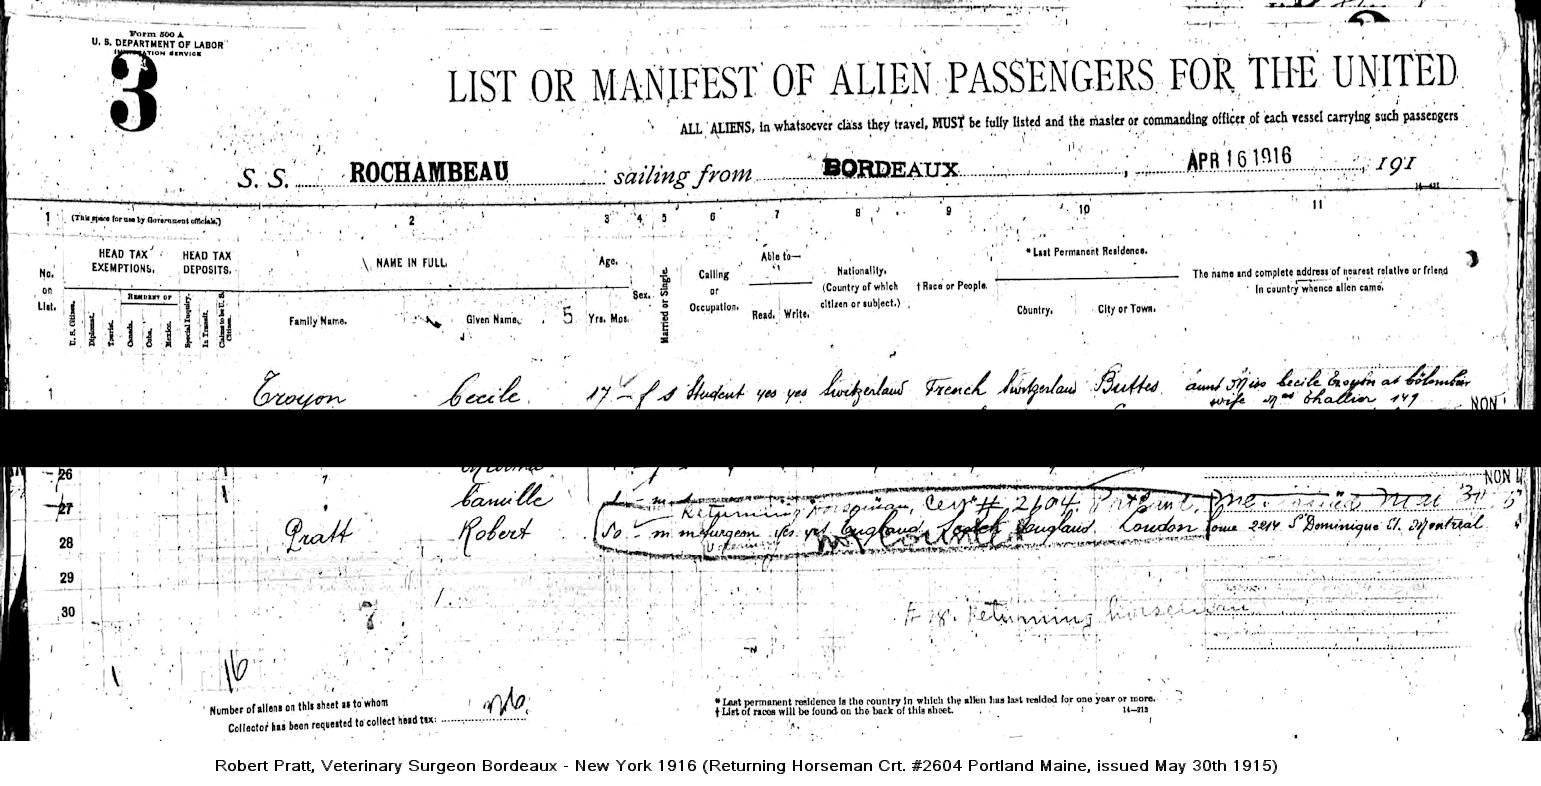 Form 500 A
U. S. DEPARTMENT OF LABOR
IMMIGRATION SERVICE
3
LIST OR MANIFEST OF ALIEN PASSENGERS FOR THE UNITED
ALL ALIENS, in whatsoever class they travel, MUST be fully listed and the master or commanding officer of each vessel carrying such passengers
S. S. ROCHAMBEAU sailing from BORDEAUX, APR 16 1916, 191
1 (This space for use by Government officials.) 2 3 4 5 6 7 8 9 10 11
No. on List.
HEAD TAX EXEMPTIONS.
HEAD TAX DEPOSITS.
RESIDENT OF
U. S. Citizen.
Diplomat.
Tourist.
Canada.
Cuba.
Mexico.
Special Inquiry.
In Transit.
Claims to be U. S. Citizen.
NAME IN FULL
Family Name.
Given Name.
5
Age.
Yrs. Mos.
Sex.
Married or Single.
Calling or Occupation.
Able to—
Read. Write.
Nationality.
(Country of which citizen or subject.)
† Race or People.
* Last Permanent Residence.
Country. City or Town.
The name and complete address of nearest relative or friend
in country whence alien came.
1 Troyon Cecile 17 f s Student yes yes Switzerland French Switzerland Buttes aunt Miss Cecile Troyon at
wife
NON
26
NON
27 Camille
Returning Horseman, Cer # 2604
28 Pratt Robert 50 m m surgeon yes yes England Scotch England London 2214 St Dominique St. Montreal
29
30
Returning horseman
16
Number of aliens on this sheet as to whom
Collector has been requested to collect head tax:
* Last permanent residence is the country in which the alien has last resided for one year or more.
† List of races will be found on the back of this sheet.
14—213
Robert Pratt, Veterinary Surgeon Bordeaux - New York 1916 (Returning Horseman Crt. #2604 Portland Maine, issued May 30th 1915)